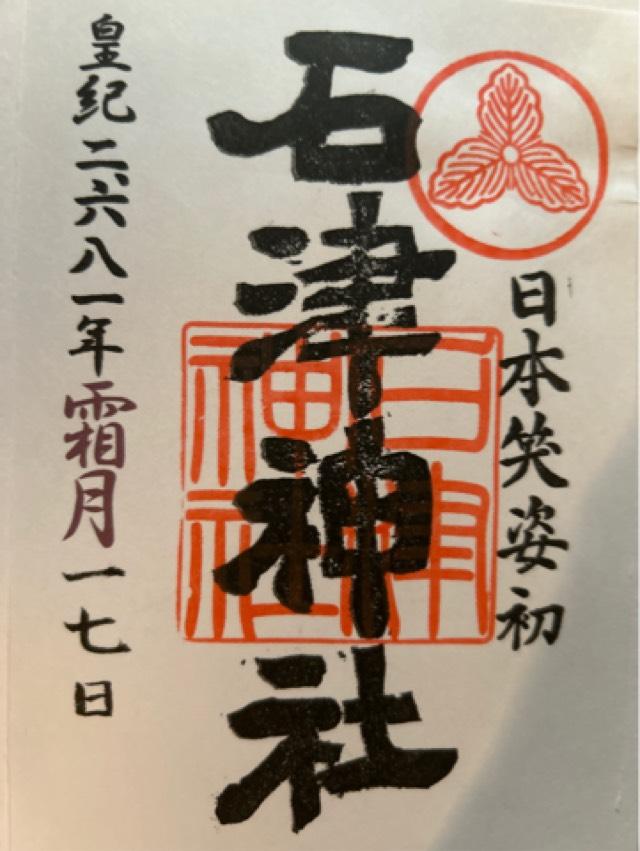 日本笑姿初
石津神社
皇紀二六八一年霜月一七日